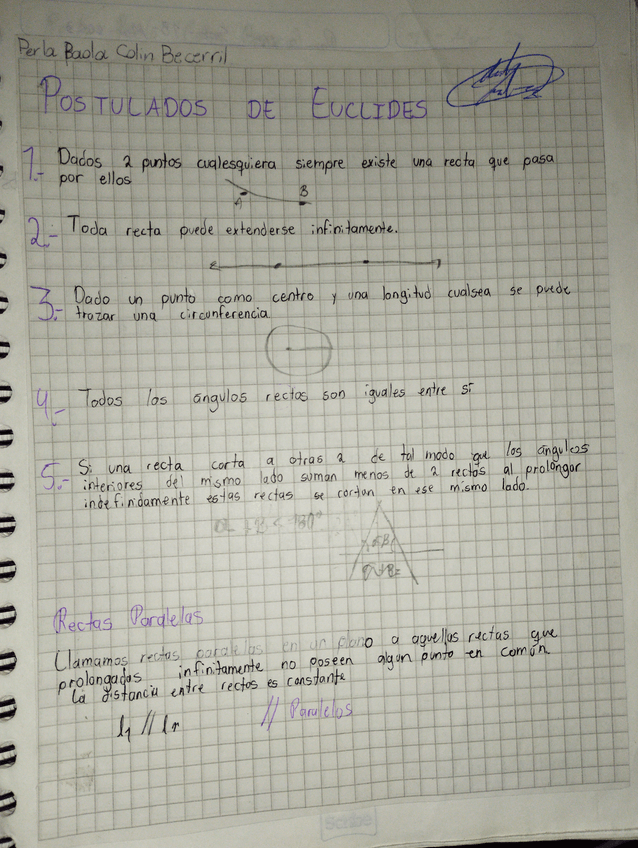 Perla Paola Colin Becerril
POSTULADOS DE EUCLIDES
1.- Dados 2 puntos cualesquiera siempre existe una recta que pasa
por ellos
A B
2.- Toda recta puede extenderse infinitamente.
3.- Dado un punto como centro y una longitud cualsea se puede
trazar una circunferencia
4.- Todos los angulos rectos son iguales entre si
5.- Si una recta corta a otras 2 de tal modo que los angulos
interiores del mismo lado suman menos de 2 rectos al prolongar
indefinidamente estas rectas se cortan en ese mismo lado.
Rectas Paralelas
Llamamos rectas paralelas en un plano a aquellas rectas que
prolongadas infinitamente no poseen algun punto en común
La distancia entre rectos es constante
// Paralelos
Scribe